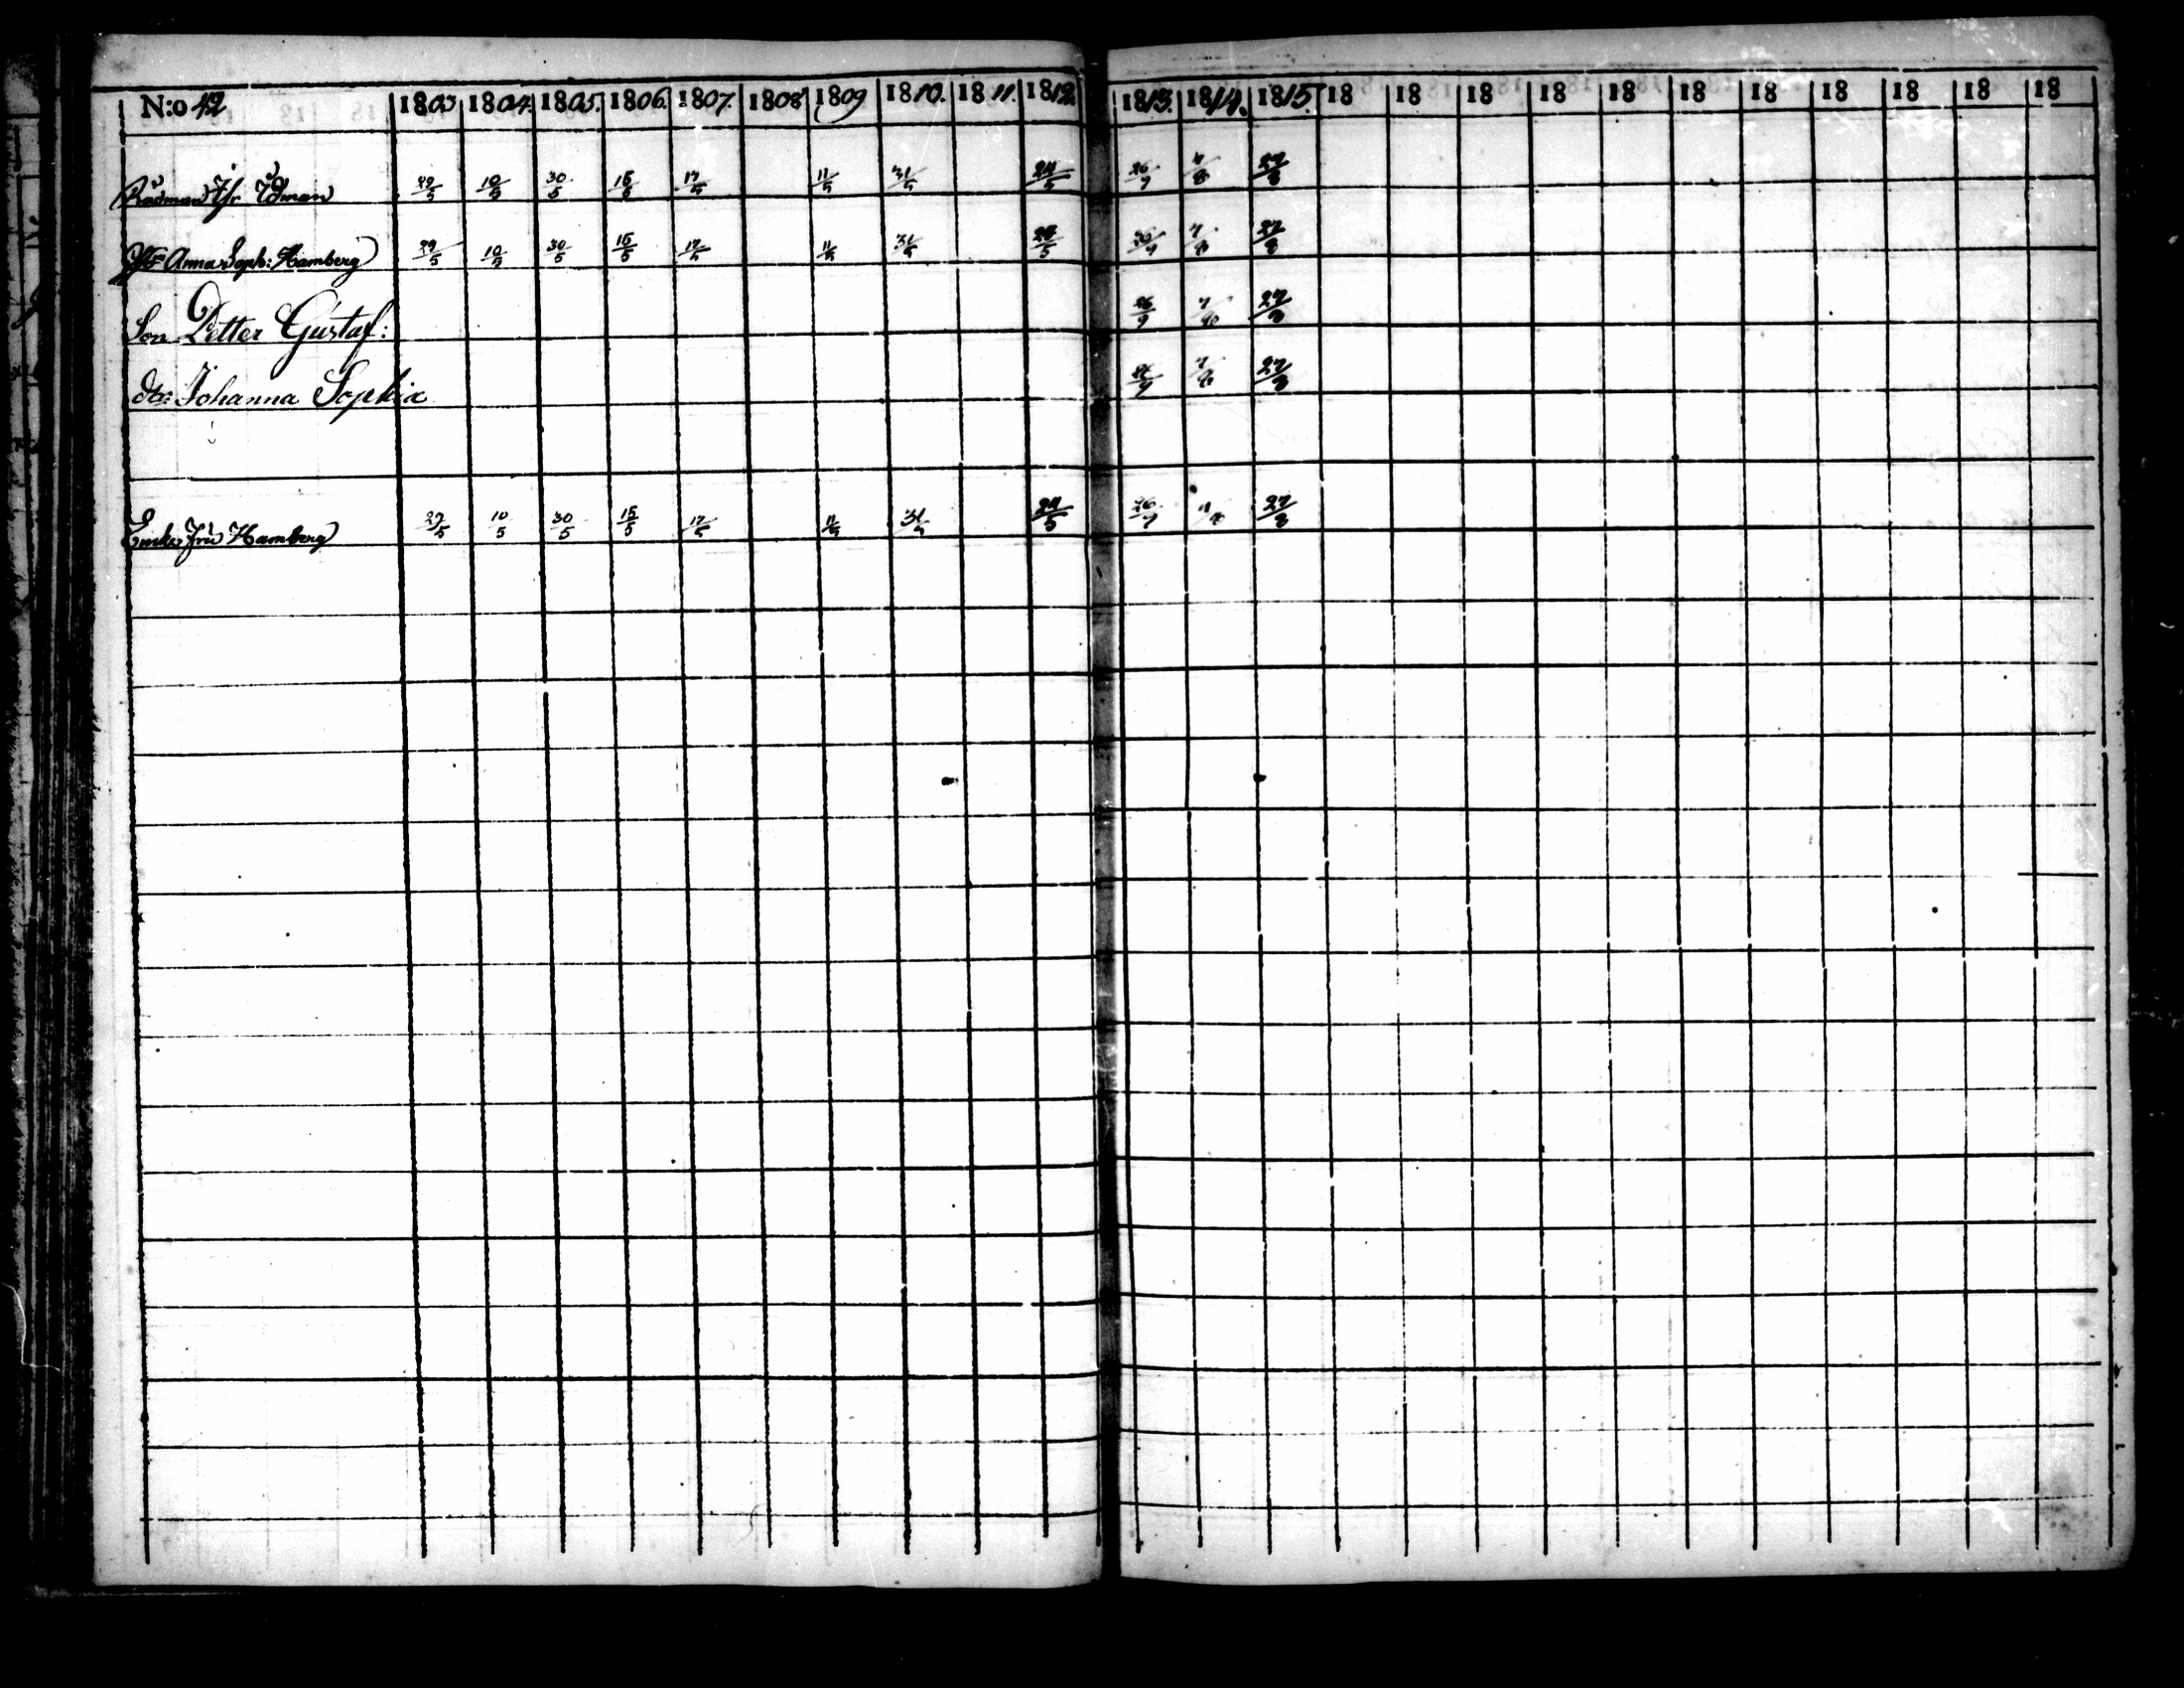 N:o 42 1803 1804. 1805. 1806. 1807. 1808 1809 1810. 1811. 1812. 1813. 1814. 1815. 18 18 18 18 18 18 18 18 18 18 18
Rådman Hr Ödman 29/5 10/5 30/5 15/5 17/5 11/5 31/5 24/5 26/9 7/8 27/8
Anna Soph: Hamberg 29/5 10/5 30/5 15/5 17/5 11/5 31/5 24/5 26/9 7/8 27/8
Son Petter Gustaf: 26/9 7/8 27/8
dtr: Johanna Sophia 26/9 7/8 27/8
Enke fru Hamberg 29/5 10/5 30/5 15/5 17/5 11/5 31/5 24/5 26/9 7/8 27/8